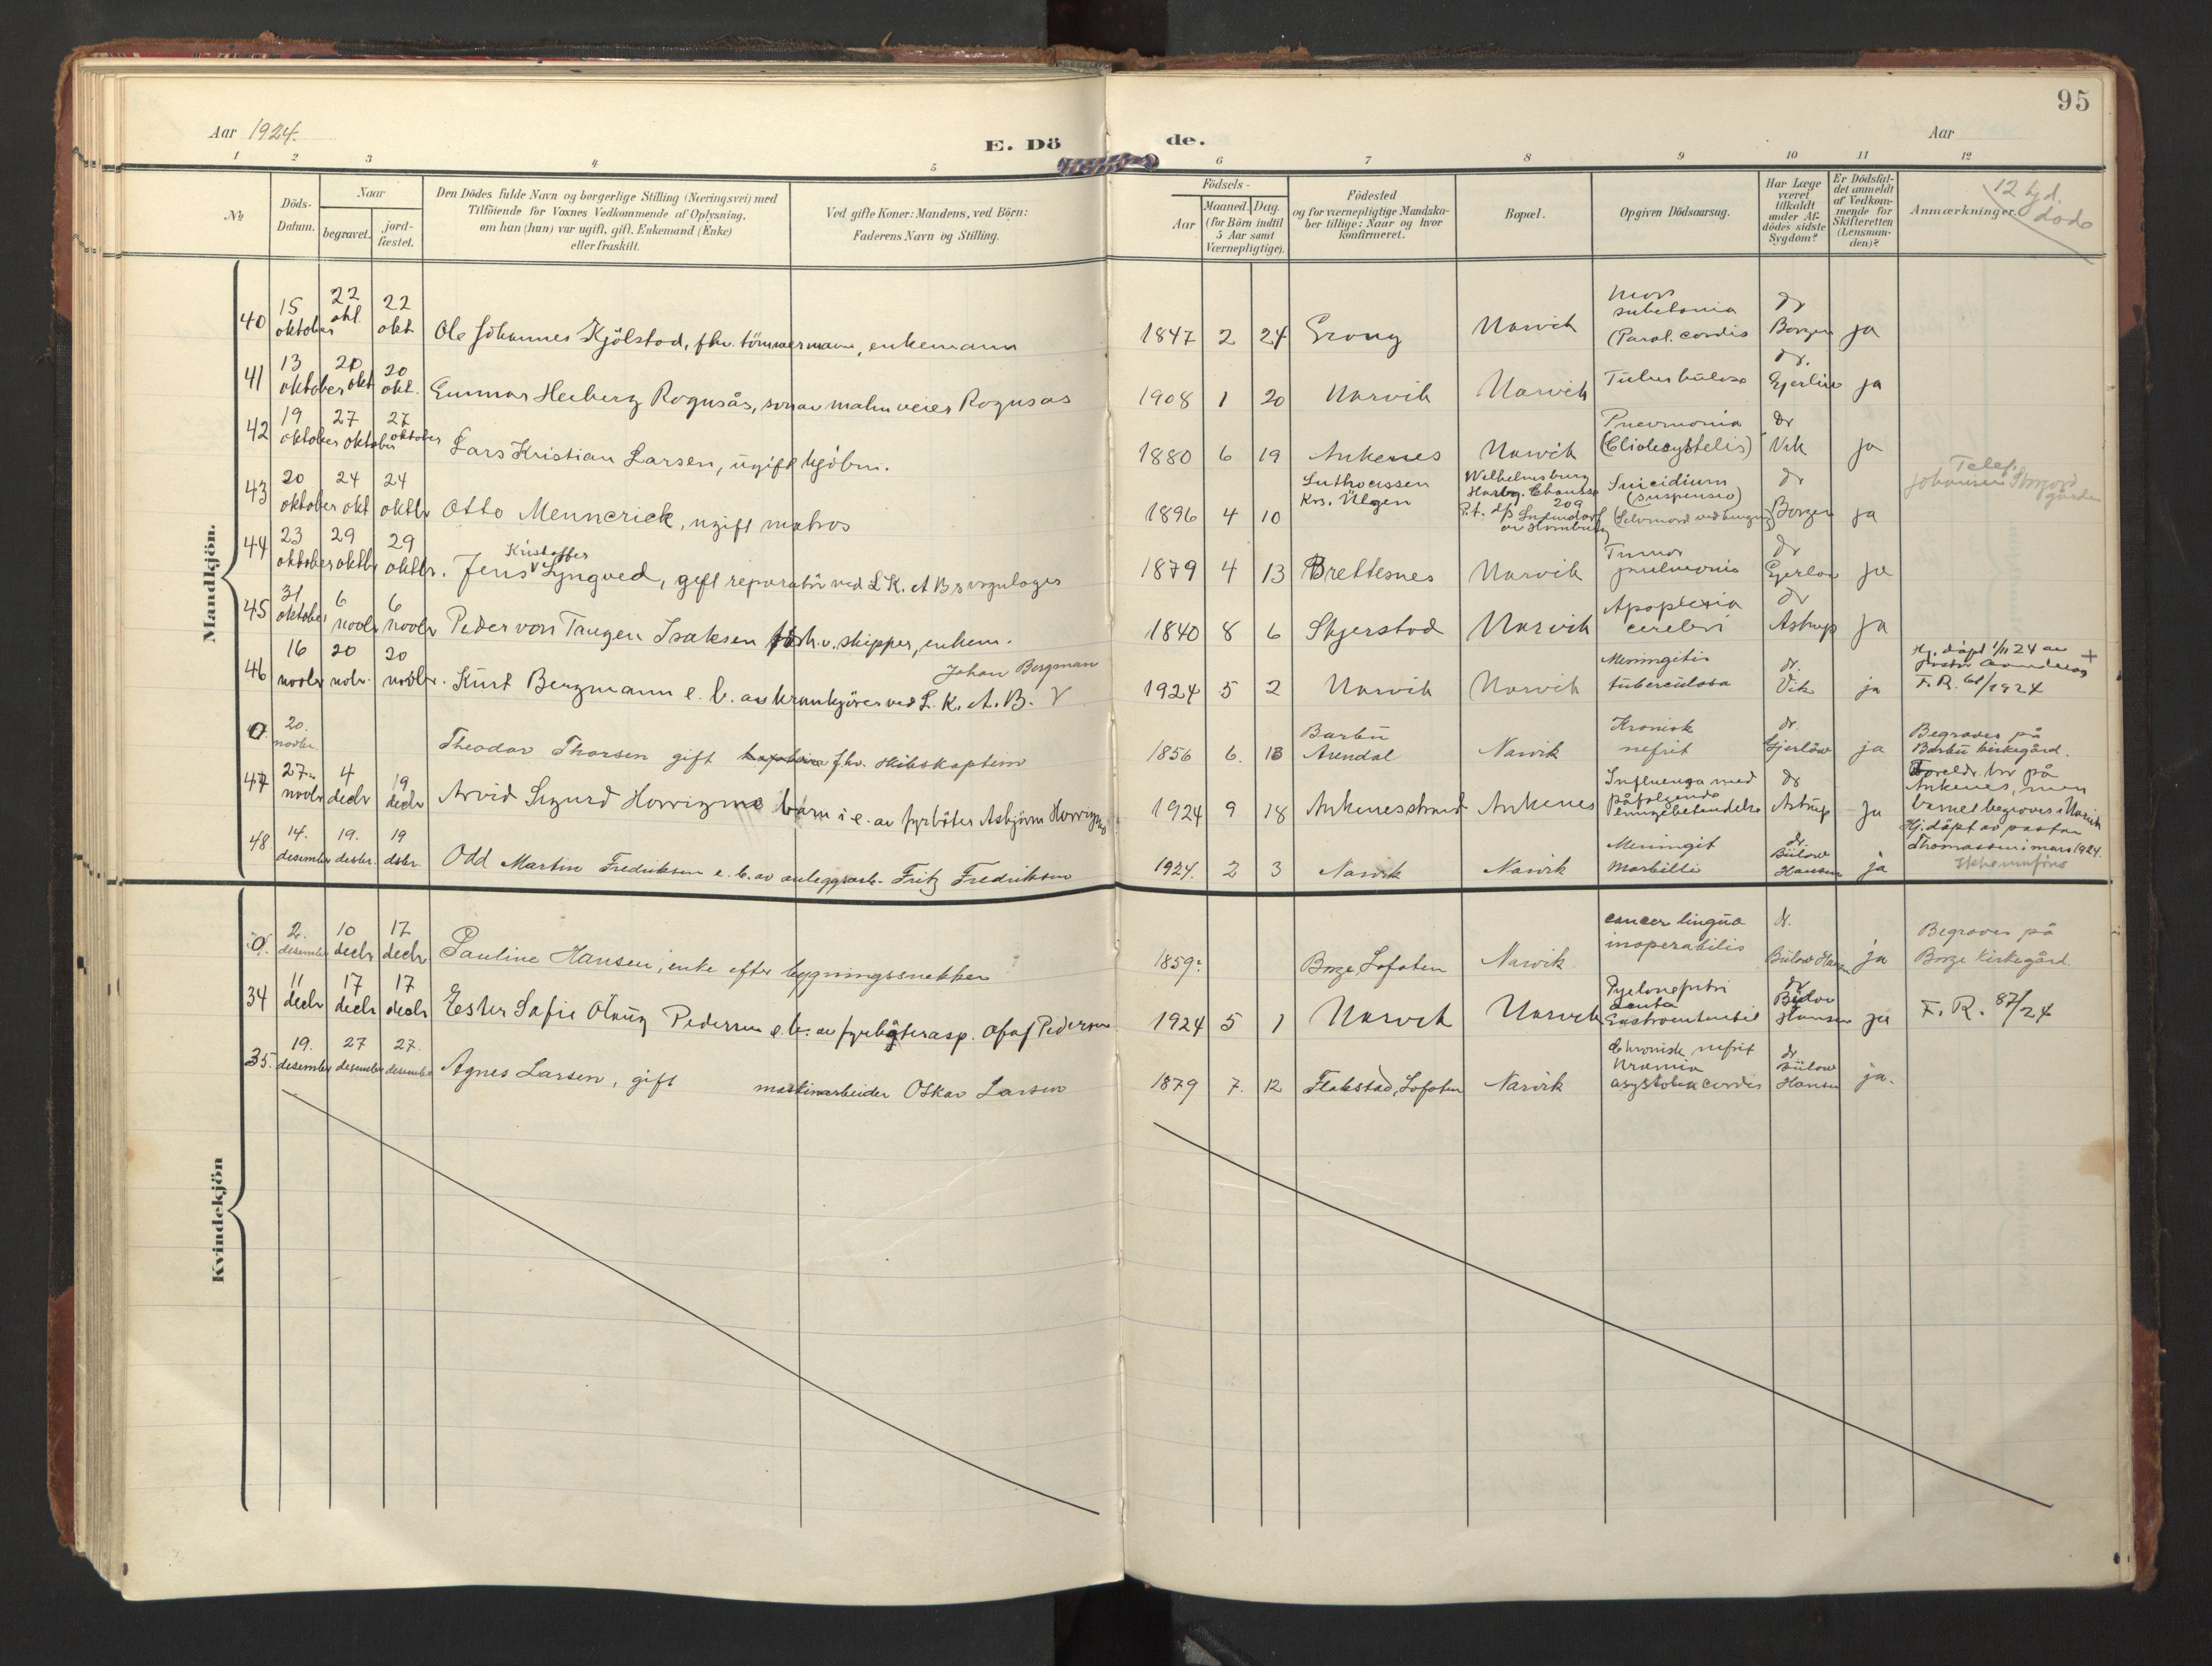 95
Aar 1924.
E. Dö de.
Aar
1 2 3 4 5 6 7 8 9 10 11 12
№
Döds-Datum.
Naar
begravet.
jord-fæstet.
Den Dödes fulde Navn og borgerlige Stilling (Næringsvei) med
Tilföiende for Voxnes Vedkommende af Oplysning,
om han (hun) var ugift, gift, Enkemand (Enke)
eller fraskilt.
Ved gifte Koner: Mandens, ved Börn:
Faderens Navn og Stilling.
Födsels-
Aar
Maaned. Dag.
(for Börn indtil
5 Aar samt
Værnepligtige).
Födested
og for værnepligtige Mandska-
ber tillige: Naar og hvor
konfirmeret.
Bopæl.
Opgiven Dödsaarsag.
Har Læge
været
tilkaldt
under Af-
dödes sidste
Sygdom?
Er Dödsfal-
det anmeldt
af Vedkom-
mende for
Skifteretten
(Lensman-
den)?
Anmærkninger.
12 
døde
Mandkjön.
40 15 oktober 22 okt. 22 okt Ole Johannes Kjölstad, fhv. tömmermann, enkemann 1847 2 24 Grong Narvik Mors subitania (Paral. cordis dr Borgen ja
41 13 oktober 20 okt 20 okt. Gunnar Herberg Rognsås, sön av malmveier Rognsås 1908 1 20 Narvik Narvik Tuberkulose dr. Gjerlöw ja
42 19 oktober 27 oktober 27 oktober Lars Kristian Larsen, ugift kjöbm. 1880 6 19 Ankenes Narvik Pneumonia dr Vik ja
43 20 oktober 24 okt 24 oktbr Otto Mennerick, ugift matros 1896 4 10 Krs. Ülzen Wilhelmsburg 209 P.t. d/s av Hamburg Suicidium (suspensio) (Selvmord ved hengning dr Borgen ja Telef. Johansen
44 23 oktober 29 oktbr 29 oktbr. Jens Kristoffer Lyngved, gift reparatör ved L.K.A.Bs vognlager 1879 4 13 Brettesnes Narvik Tumor pulmonis dr Gjerlöw ja
45 31 oktober 6 novbr 6 novbr Peder von Tangen Isaksen fhv. skipper, enkem. 1840 8 6 Skjerstad Narvik Apoplexia cerebri dr Astrup ja
46 16 novbr 20 nobr. 20 novbr. Kurt Bergmann e. b. av krankjörer ved L.K.A.B. V Johan Bergman 1924 5 2 Narvik Narvik Meningitis tuberculosa dr. Vik ja Hj. döpt 1/11 24 av F.R. 61/1924 +
0. 20. novbr. Theodor Thorsen gift fhv. skibskaptein 1856 6. 13 Barbu Arendal Narvik Kronisk nefrit dr. Gjerlöw ja Begraves på Barbu kirkegård.
47 27. novbr 4 decbr 19 decbr Arvid Sigurd Horrigmo barn i e. av fyrböter Asbjörn Horrigmo 1924 9 18 Ankenesstrand Ankenes Influenza med påfölgende lungebetendelse dr Astrup ja Foreldr. bor på Ankenes, men barnet begraves i Narvik
48. 14. desember 19. desbr. 19 dsbr. Odd Martin Fredriksen e. b. av anleggsarb. Fritz Fredriksen 1924. 2 3 Narvik Narvik Meningit Morbilli dr. Bülow Hansen ja Hj. döpt av pastor Thomassen i mars 1924. Ikke innförs
Kvindekjön
0. 2. desember 10 decbr 17 decbr. Pauline Hansen, enke efter bygningssnekker 1859. Borge, Lofoten Narvik cancer lingua inoperabilis dr. Bülow Hansen ja Begraves på Borge Kirkegård.
34 11 decbr 17 decbr 17 decbr Ester Sofie Olaug Pedersen e. b. av fyrböterasp. Olaf Pedersen 1924 5 1 Narvik Narvik dr Bülow Hansen ja F.R. 87/24
35. 19. desember 27 desember 27. desember Agnes Larsen, gift maskinarbeider Oskar Larsen 1879 7. 12 Flakstad, Lofoten Narvik Chronisk nefrit Uremia asystolia cordis dr Bülow Hansen ja.